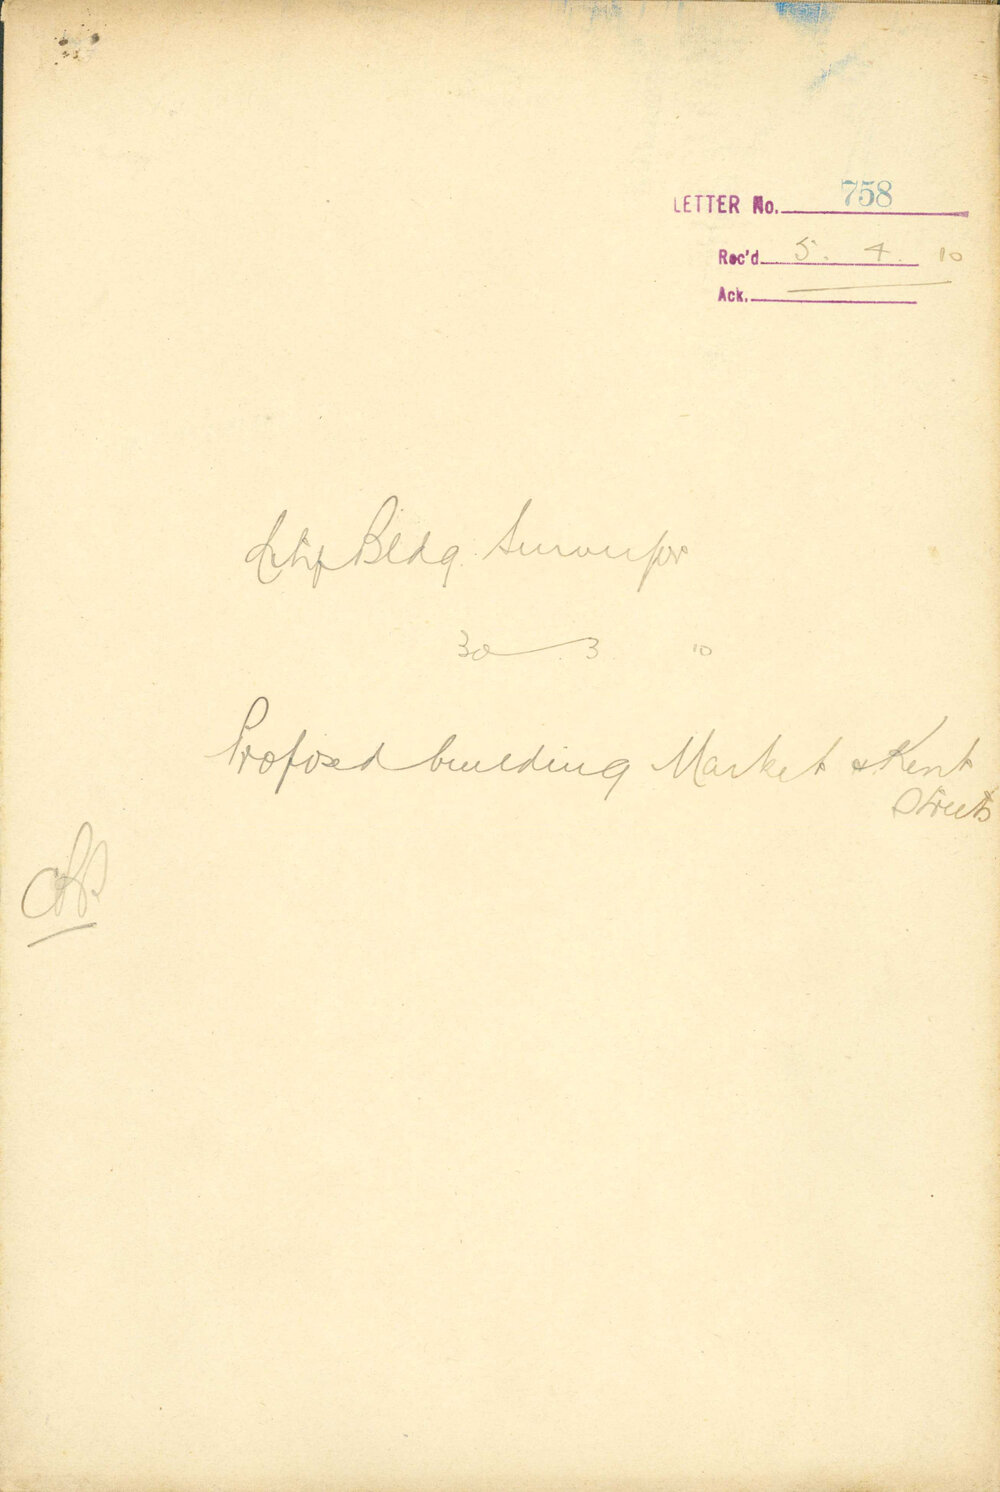 LETTER No. 758
Rec'd 5. 4. 10
Ack.
City Bldg. Surveyor
30 3 10
Proposed building Market & Kent
Streets